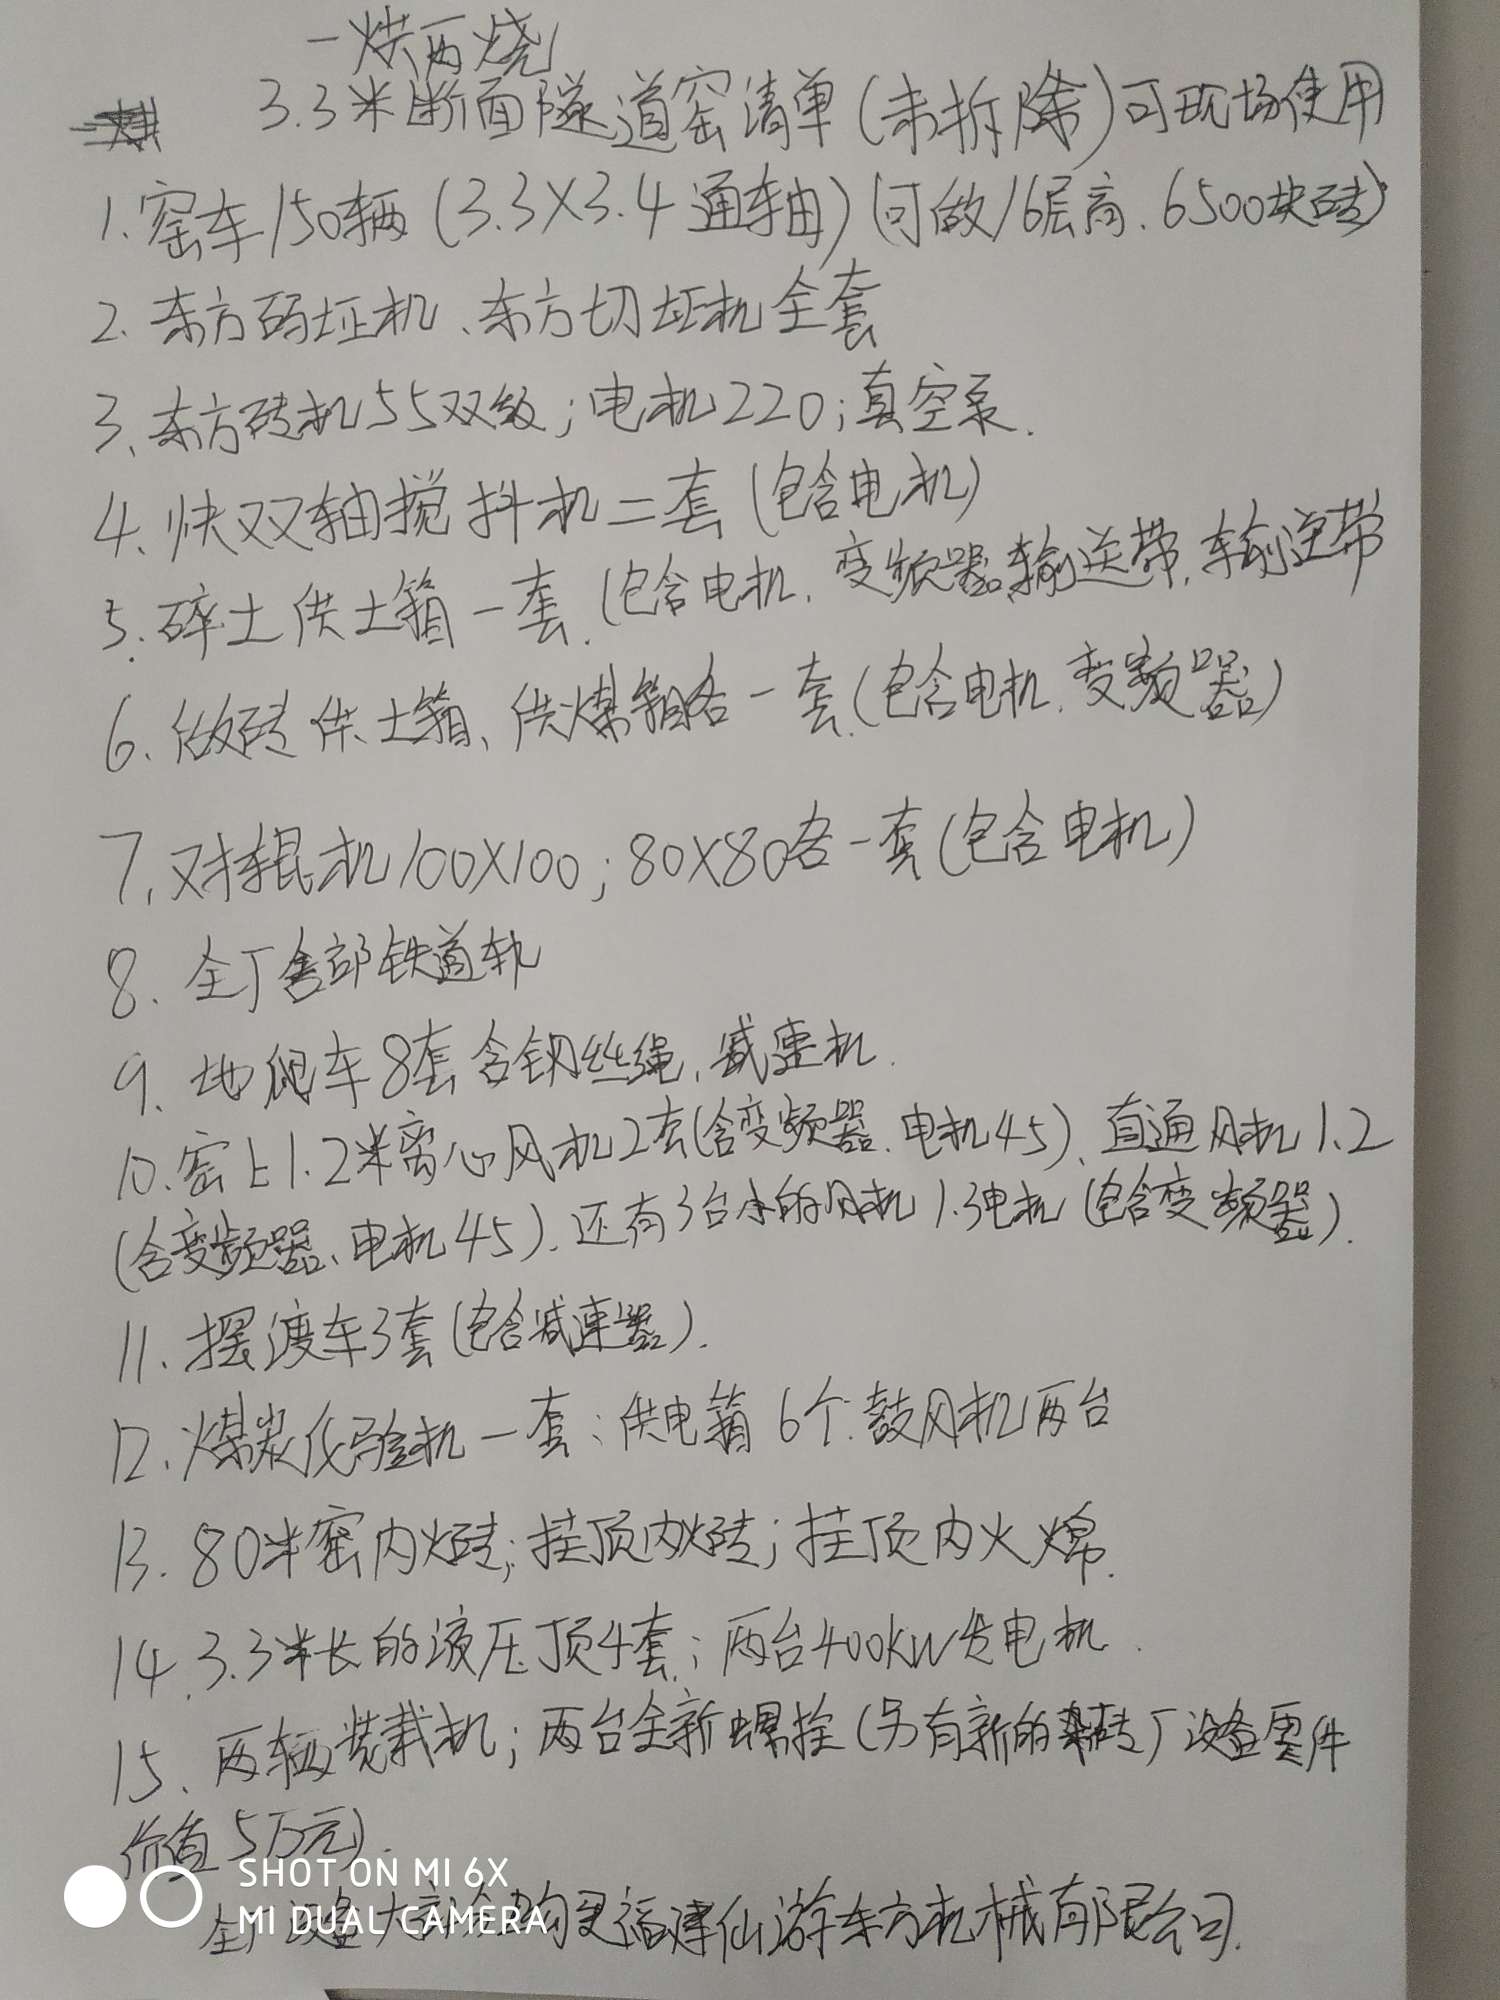 一烘两烧
3.3米断面隧道窑清单(未拆除)可现场使用
1.窑车150辆(3.3X3.4通轴)(可做16层高.6500块砖)
2.东方码坯机、东方切坯机全套
3、东方砖机55双级;电机220;真空泵.
4.快双轴搅抖机二套(包含电机)
5.碎土供土箱一套.(包含电机.变频器.输送带.车输送带
6.做砖供土箱、供煤箱各一套.(包含电机.变频器)
7.对辊机100X100;80X80各一套(包含电机)
8.全厂全部铁道轨
9.地爬车8套含钢丝绳、减速机.
10.窑上1.2米离心风机2套(含变频器.电机45)、直通风机1.2
(含变频器、电机45).还有3台小的风机1.3电机(包含变频器).
11.摆渡车3套(包含减速器).
12.煤炭化验机一套;供电箱6个.鼓风机两台
13.80米窑内火砖;挂顶内火砖;挂顶内火棉.
14.3.3米长的液压顶4套;两台400KW发电机.
15、两辆装载机;两台全新螺拴(另有新的砖厂设备零件
价值5万元).
全厂设备大部分购买福建仙游东方机械有限公司.
SHOT ON MI 6X
MI DUAL CAMERA